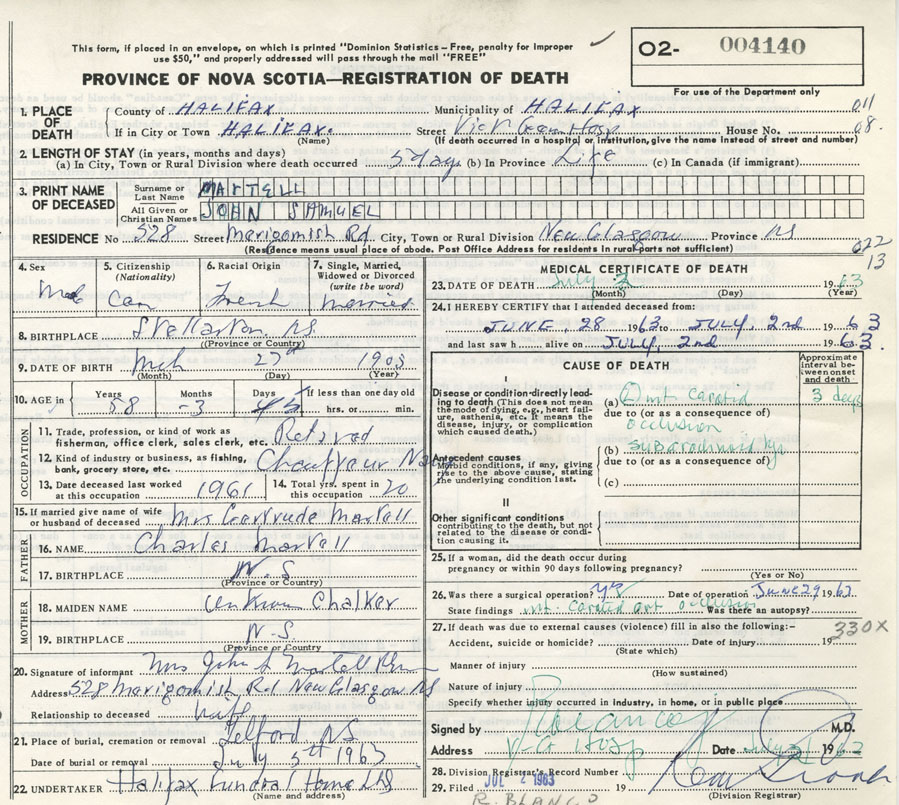 This form, if placed in an envelope, on which is printed "Dominion Statistics – Free, penalty for improper
use $50," and properly addressed will pass through the mail "FREE"
O2- 004140
PROVINCE OF NOVA SCOTIA—REGISTRATION OF DEATH
For use of the Department only
1. PLACE OF DEATH
County of HALIFAX Municipality of HALIFAX 011
If in City or Town HALIFAX. Street Vict Gen Hosp House No. 08.
(Name) (If death occurred in a hospital or institution, give the name instead of street and number)
2. LENGTH OF STAY (in years, months and days)
(a) In City, Town or Rural Division where death occurred 5 days (b) In Province Life (c) In Canada (if immigrant)
3. PRINT NAME OF DECEASED
Surname or Last Name MARTELL
All Given or Christian Names JOHN SAMUEL
RESIDENCE No 528 Street Merigomish Rd. City, Town or Rural Division New Glasgow Province NS
(Residence means usual place of abode. Post Office Address for residents in rural parts not sufficient) 022
13
4. Sex Male
5. Citizenship (Nationality) Can
6. Racial Origin French
7. Single, Married, Widowed or Divorced (write the word) Married
8. BIRTHPLACE Stellarton NS
(Province or Country)
9. DATE OF BIRTH Mch 27th 1903
(Month) (Day) (Year)
10. AGE in Years 58 Months 3 Days If less than one day old
hrs. or min.
OCCUPATION
11. Trade, profession, or kind of work as fisherman, office clerk, sales clerk, etc. Retired
12. Kind of industry or business, as fishing, bank, grocery store, etc. Chauffeur Navy
13. Date deceased last worked at this occupation 1961
14. Total yrs. spent in this occupation 20
15. If married give name of wife or husband of deceased Mrs Gertrude Martell
FATHER
16. NAME Charles Martell
17. BIRTHPLACE N.S.
(Province or Country)
MOTHER
18. MAIDEN NAME Unknown Chalker
19. BIRTHPLACE N-S.
(Province or Country)
20. Signature of informant Mrs John S Martell
Address 528 Merigomish Rd New Glasgow NS
Relationship to deceased wife
21. Place of burial, cremation or removal Telford NS
Date of burial or removal July 5th 1963
22. UNDERTAKER Halifax Funeral Home Ltd
(Name and address)
MEDICAL CERTIFICATE OF DEATH
23. DATE OF DEATH July 2 1963
(Month) (Day) (Year)
24. I HEREBY CERTIFY that I attended deceased from:
JUNE 28 1963 to JULY, 2nd 1963
and last saw h alive on JULY, 2nd 1963.
CAUSE OF DEATH
Approximate interval between onset and death
I
Disease or condition directly leading to death (This does not mean the mode of dying, e.g., heart failure, asthenia, etc. It means the disease, injury, or complication which caused death.)
(a) int. carotid 3 days
due to (or as a consequence of)
occlusion
Antecedent causes
Morbid conditions, if any, giving rise to the above cause, stating the underlying condition last.
(b)
due to (or as a consequence of)
(c)
II
Other significant conditions
contributing to the death, but not related to the disease or condition causing it.
25. If a woman, did the death occur during
pregnancy or within 90 days following pregnancy?
(Yes or No)
26. Was there a surgical operation? yes Date of operation June 29 1963
State findings int. carotid art occlusion Was there an autopsy?
27. If death was due to external causes (violence) fill in also the following:– 330X
Accident, suicide or homicide? Date of injury 19
(State which)
Manner of injury
(How sustained)
Nature of injury
Specify whether injury occurred in industry, in home, or in public place
Signed by R Blanco M.D.
Address V-G Hosp Date July 2 1963
28. Division Registrar's Record Number
29. Filed JUL 2 1963 19
(Division Registrar)
R. BLANCO